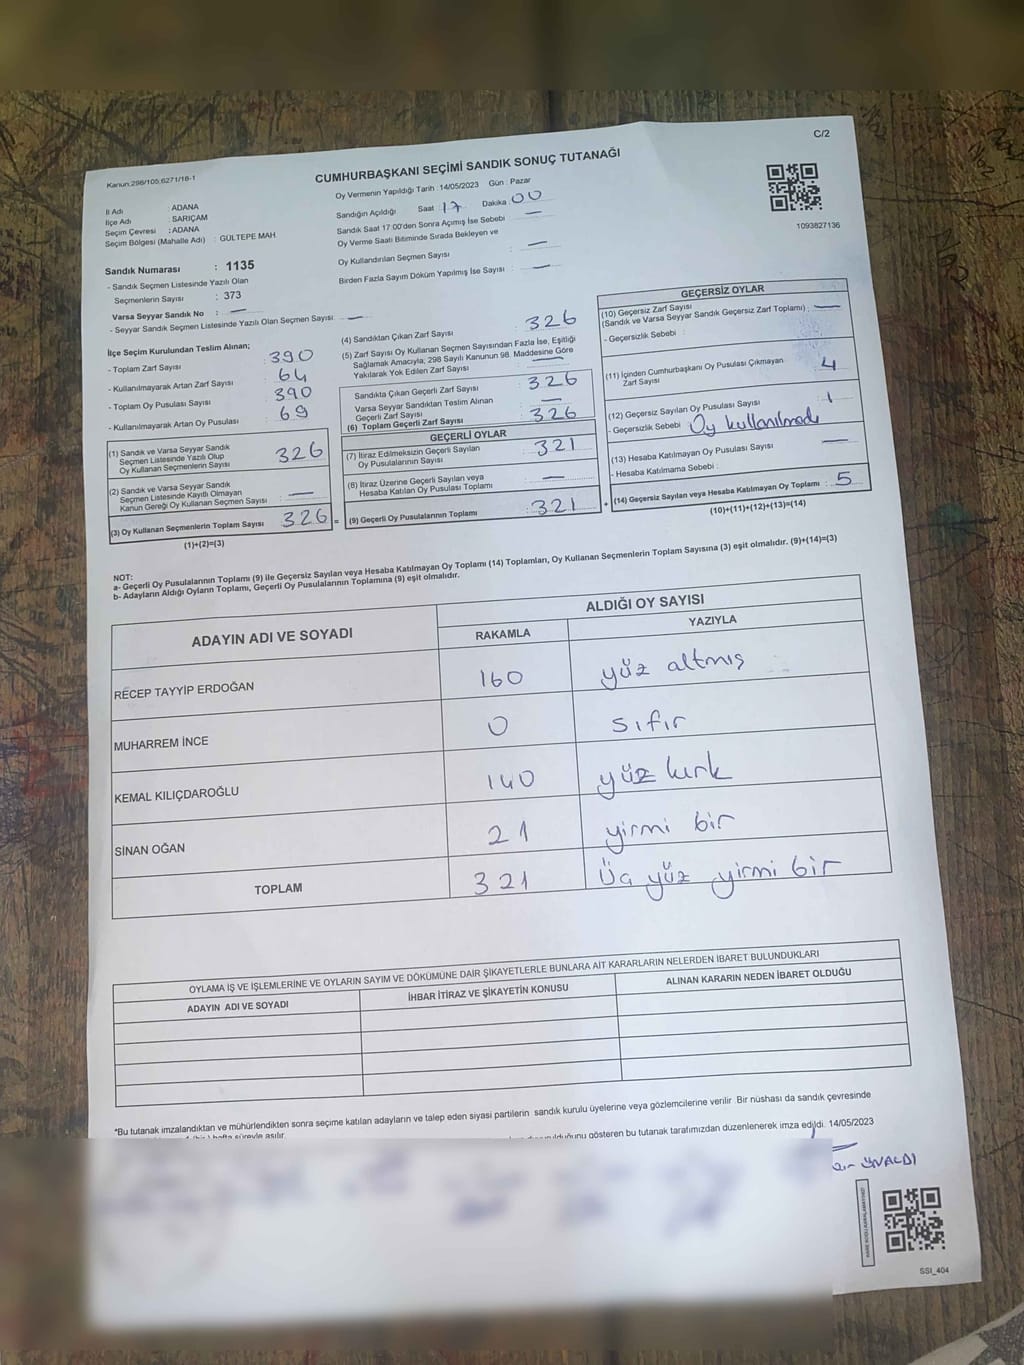 C/2
Kanun:298/105,6271/18-1
CUMHURBAŞKANI SEÇİMİ SANDIK SONUÇ TUTANAĞI
Oy Vermenin Yapıldığı Tarih :14/05/2023 Gün : Pazar
İl Adı : ADANA
İlçe Adı : SARIÇAM
Seçim Çevresi : ADANA
Seçim Bölgesi (Mahalle Adı) : GÜLTEPE MAH.
Sandığın Açıldığı Saat : 17 Dakika : 00
Sandık Saat 17:00'den Sonra Açımış İse Sebebi : —
Oy Verme Saati Bitiminde Sırada Bekleyen ve
Oy Kullandırılan Seçmen Sayısı : —
Birden Fazla Sayım Döküm Yapılmış İse Sayısı : —
1093827136
Sandık Numarası : 1135
- Sandık Seçmen Listesinde Yazılı Olan
Seçmenlerin Sayısı : 373
Varsa Seyyar Sandık No : —
- Seyyar Sandık Seçmen Listesinde Yazılı Olan Seçmen Sayısı: —
İlçe Seçim Kurulundan Teslim Alınan;
- Toplam Zarf Sayısı : 390
- Kullanılmayarak Artan Zarf Sayısı : 64
- Toplam Oy Pusulası Sayısı : 390
- Kullanılmayarak Artan Oy Pusulası : 69
(1) Sandık ve Varsa Seyyar Sandık
Seçmen Listesinde Yazılı Olup
Oy Kullanan Seçmenlerin Sayısı : 326
(2) Sandık ve Varsa Seyyar Sandık
Seçmen Listesinde Kayıtlı Olmayan
Kanun Gereği Oy Kullanan Seçmen Sayısı : —
(3) Oy Kullanan Seçmenlerin Toplam Sayısı : 326 =
(1)+(2)=(3)
(4) Sandıktan Çıkan Zarf Sayısı : 326
(5) Zarf Sayısı Oy Kullanan Seçmen Sayısından Fazla İse, Eşitliği
Sağlamak Amacıyla, 298 Sayılı Kanunun 98. Maddesine Göre
Yakılarak Yok Edilen Zarf Sayısı : —
Sandıkta Çıkan Geçerli Zarf Sayısı : 326
Varsa Seyyar Sandıktan Teslim Alınan
Geçerli Zarf Sayısı : —
(6) Toplam Geçerli Zarf Sayısı : 326
GEÇERLİ OYLAR
(7) İtiraz Edilmeksizin Geçerli Sayılan
Oy Pusulalarının Sayısı : 321
(8) İtiraz Üzerine Geçerli Sayılan veya
Hesaba Katılan Oy Pusulası Toplamı : —
(9) Geçerli Oy Pusulalarının Toplamı : 321 +
GEÇERSİZ OYLAR
(10) Geçersiz Zarf Sayısı
(Sandık ve Varsa Seyyar Sandık Geçersiz Zarf Toplamı) : —
- Geçersizlik Sebebi :
(11) İçinden Cumhurbaşkanı Oy Pusulası Çıkmayan
Zarf Sayısı : 4
(12) Geçersiz Sayılan Oy Pusulası Sayısı : 1
- Geçersizlik Sebebi : Oy kullanılmadı
(13) Hesaba Katılmayan Oy Pusulası Sayısı : —
- Hesaba Katılmama Sebebi :
(14) Geçersiz Sayılan veya Hesaba Katılmayan Oy Toplamı : 5
(10)+(11)+(12)+(13)=(14)
NOT:
a- Geçerli Oy Pusulalarının Toplamı (9) ile Geçersiz Sayılan veya Hesaba Katılmayan Oy Toplamı (14) Toplamları, Oy Kullanan Seçmenlerin Toplam Sayısına (3) eşit olmalıdır. (9)+(14)=(3)
b- Adayların Aldığı Oyların Toplamı, Geçerli Oy Pusulalarının Toplamına (9) eşit olmalıdır.
ADAYIN ADI VE SOYADI ALDIĞI OY SAYISI
RAKAMLA YAZIYLA
RECEP TAYYİP ERDOĞAN 160 yüz altmış
MUHARREM İNCE 0 sıfır
KEMAL KILIÇDAROĞLU 140 yüz kırk
SİNAN OĞAN 21 yirmi bir
TOPLAM 321 Üç yüz yirmi bir
OYLAMA İŞ VE İŞLEMLERİNE VE OYLARIN SAYIM VE DÖKÜMÜNE DAİR ŞİKAYETLERLE BUNLARA AİT KARARLARIN NELERDEN İBARET BULUNDUKLARI
ADAYIN ADI VE SOYADI İHBAR İTİRAZ VE ŞİKAYETİN KONUSU ALINAN KARARIN NEDEN İBARET OLDUĞU
*Bu tutanak imzalandıktan ve mühürlendikten sonra seçime katılan adayların ve talep eden siyasi partilerin sandık kurulu üyelerine veya gözlemcilerine verilir. Bir nüshası da sandık çevresinde
hafta süreyle asılır.
gösteren bu tutanak tarafımızdan düzenlenerek imza edildi. 14/05/2023
ÜNALDI
SSI_404